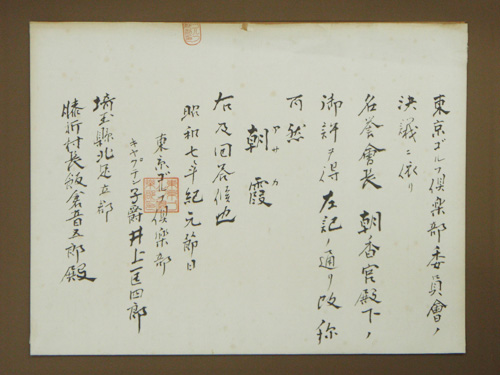 東京ゴルフ倶楽部委員會ノ
決議ニ依リ
名誉會長 朝香宮殿下ノ
御許ヲ得左記ノ通リ改称
可然
アサカ
朝霞
右及回答候也
昭和七年紀元節日
東京ゴルフ倶楽部
キャプテン子爵井上匡四郎
埼玉縣北足立郡
膝折村長飯倉喜五郎殿